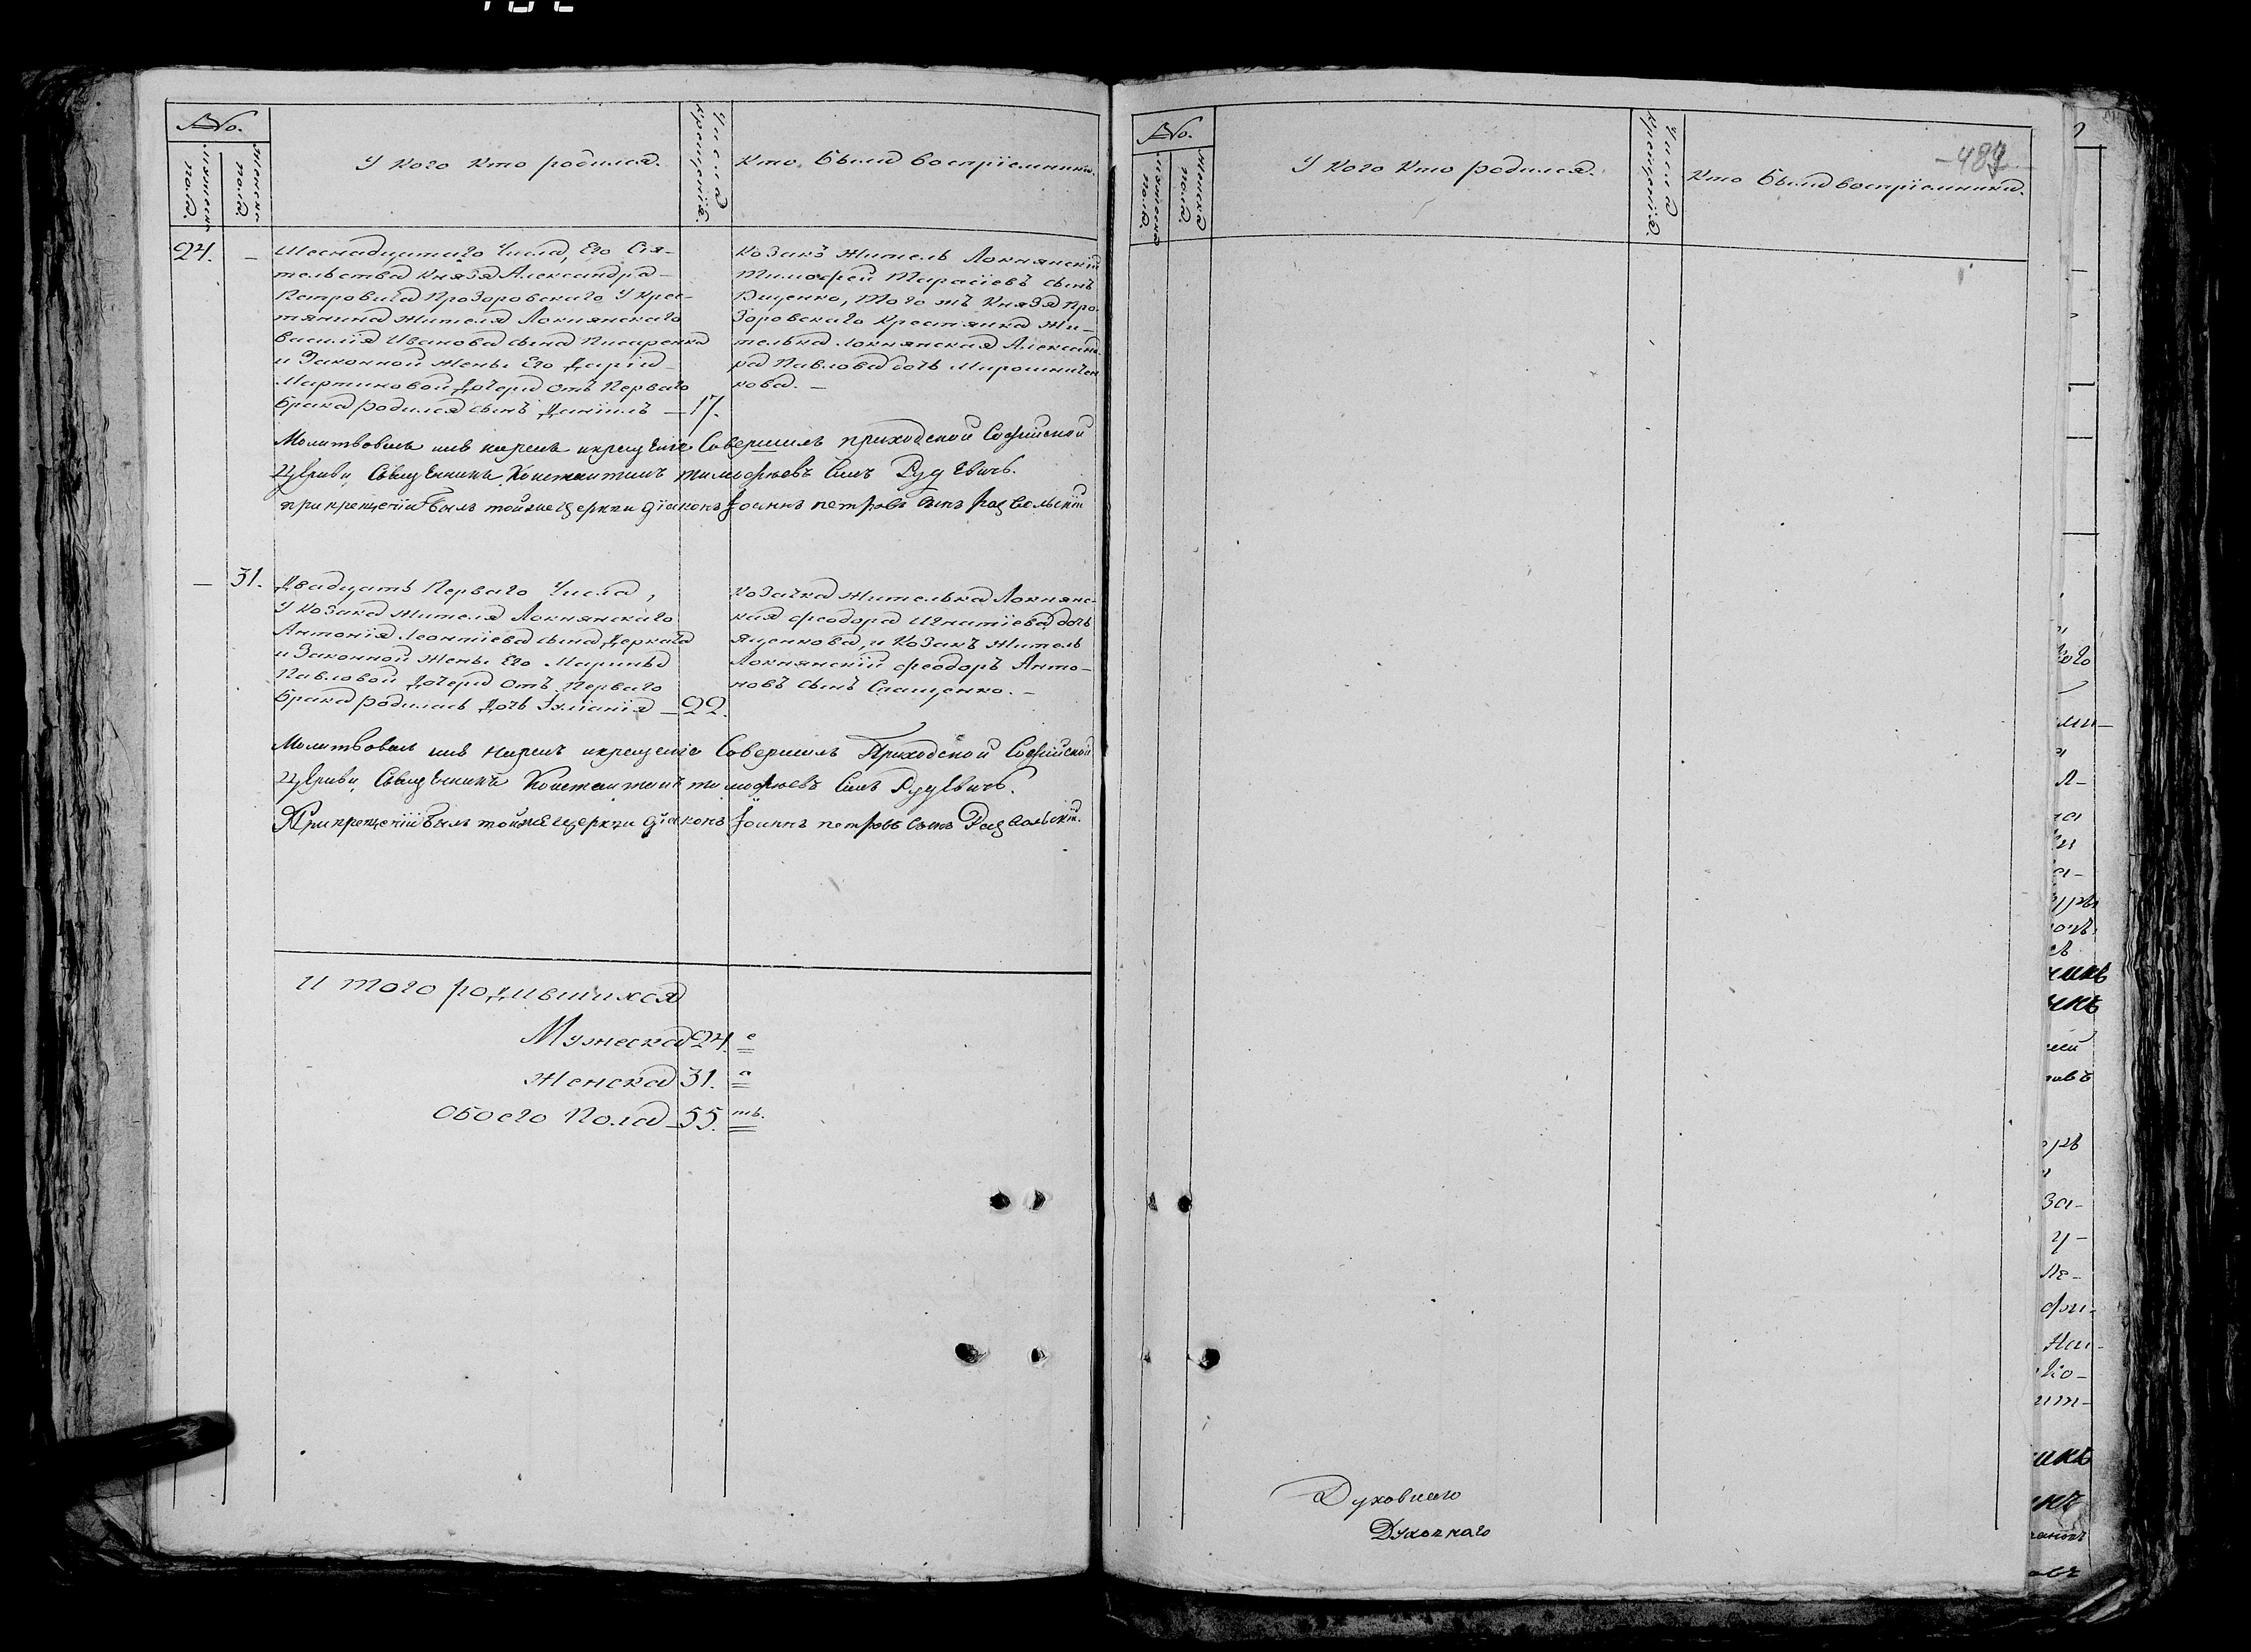 №.
Мужеска пола.
Женска пола.
У кого кто родился.
Числа крещенія.
Кто были воспріемники.
24. –
Шеснадцатаго Числа, Его Сія-
тельства Князя Александра
Петровича Прозоровскаго У крес-
тянина жителя Локнянскаго
Василія Иванова сына Писаренка
и Законной жены Его Даріи
Мартиновой дочери отъ Перваго
брака родился сынъ Даніилъ — 17.
Козакъ житель Локнянскій
Тимофей Тарасіевъ сынъ
Ищенко, того жъ Князя Про-
зоровскаго крестянка жи-
телька локнянская Александ-
ра Павлова дочь Мирошничен
кова. –
Молитвовалъ имя нарекъ и крещеніе Совершилъ приходской Софійской
Церкви Священникъ Константинъ тимофеевъ Синъ
при крещеніи былъ тойже Церкви діаконъ Іоаннъ петровъ Сынъ
– 31.
Двадцать Перваго Числа,
У козака жителя Локнянскаго
Антонія Леонтіева сына Деркача
и Законной жены Его Марины
Павловой дочери отъ Перваго
брака родилась дочь Іуліанія — 22.
Козачка жителька Локнянс-
кая феодора Игнатіева дочь
Яценкова, и Козакъ житель
Локнянскій феодоръ Анто-
новъ сынъ Спащенко. –
Молитвовалъ имя нарекъ и крещеніе Совершилъ Приходской Софійской
Церкви Священникъ Константинъ тимофеевъ Синъ
При крещеніи былъ тойже Церкви діаконъ Іоаннъ петровъ Сынъ
И того родившихся
Мужеска 24. е
Женска 31. а
Обоего Пола 55. ть.
№.
Мужеска пола.
Женска пола.
У кого кто родился.
Числа крещенія.
Кто были воспріемники.
Духовнаго
Духовнаго